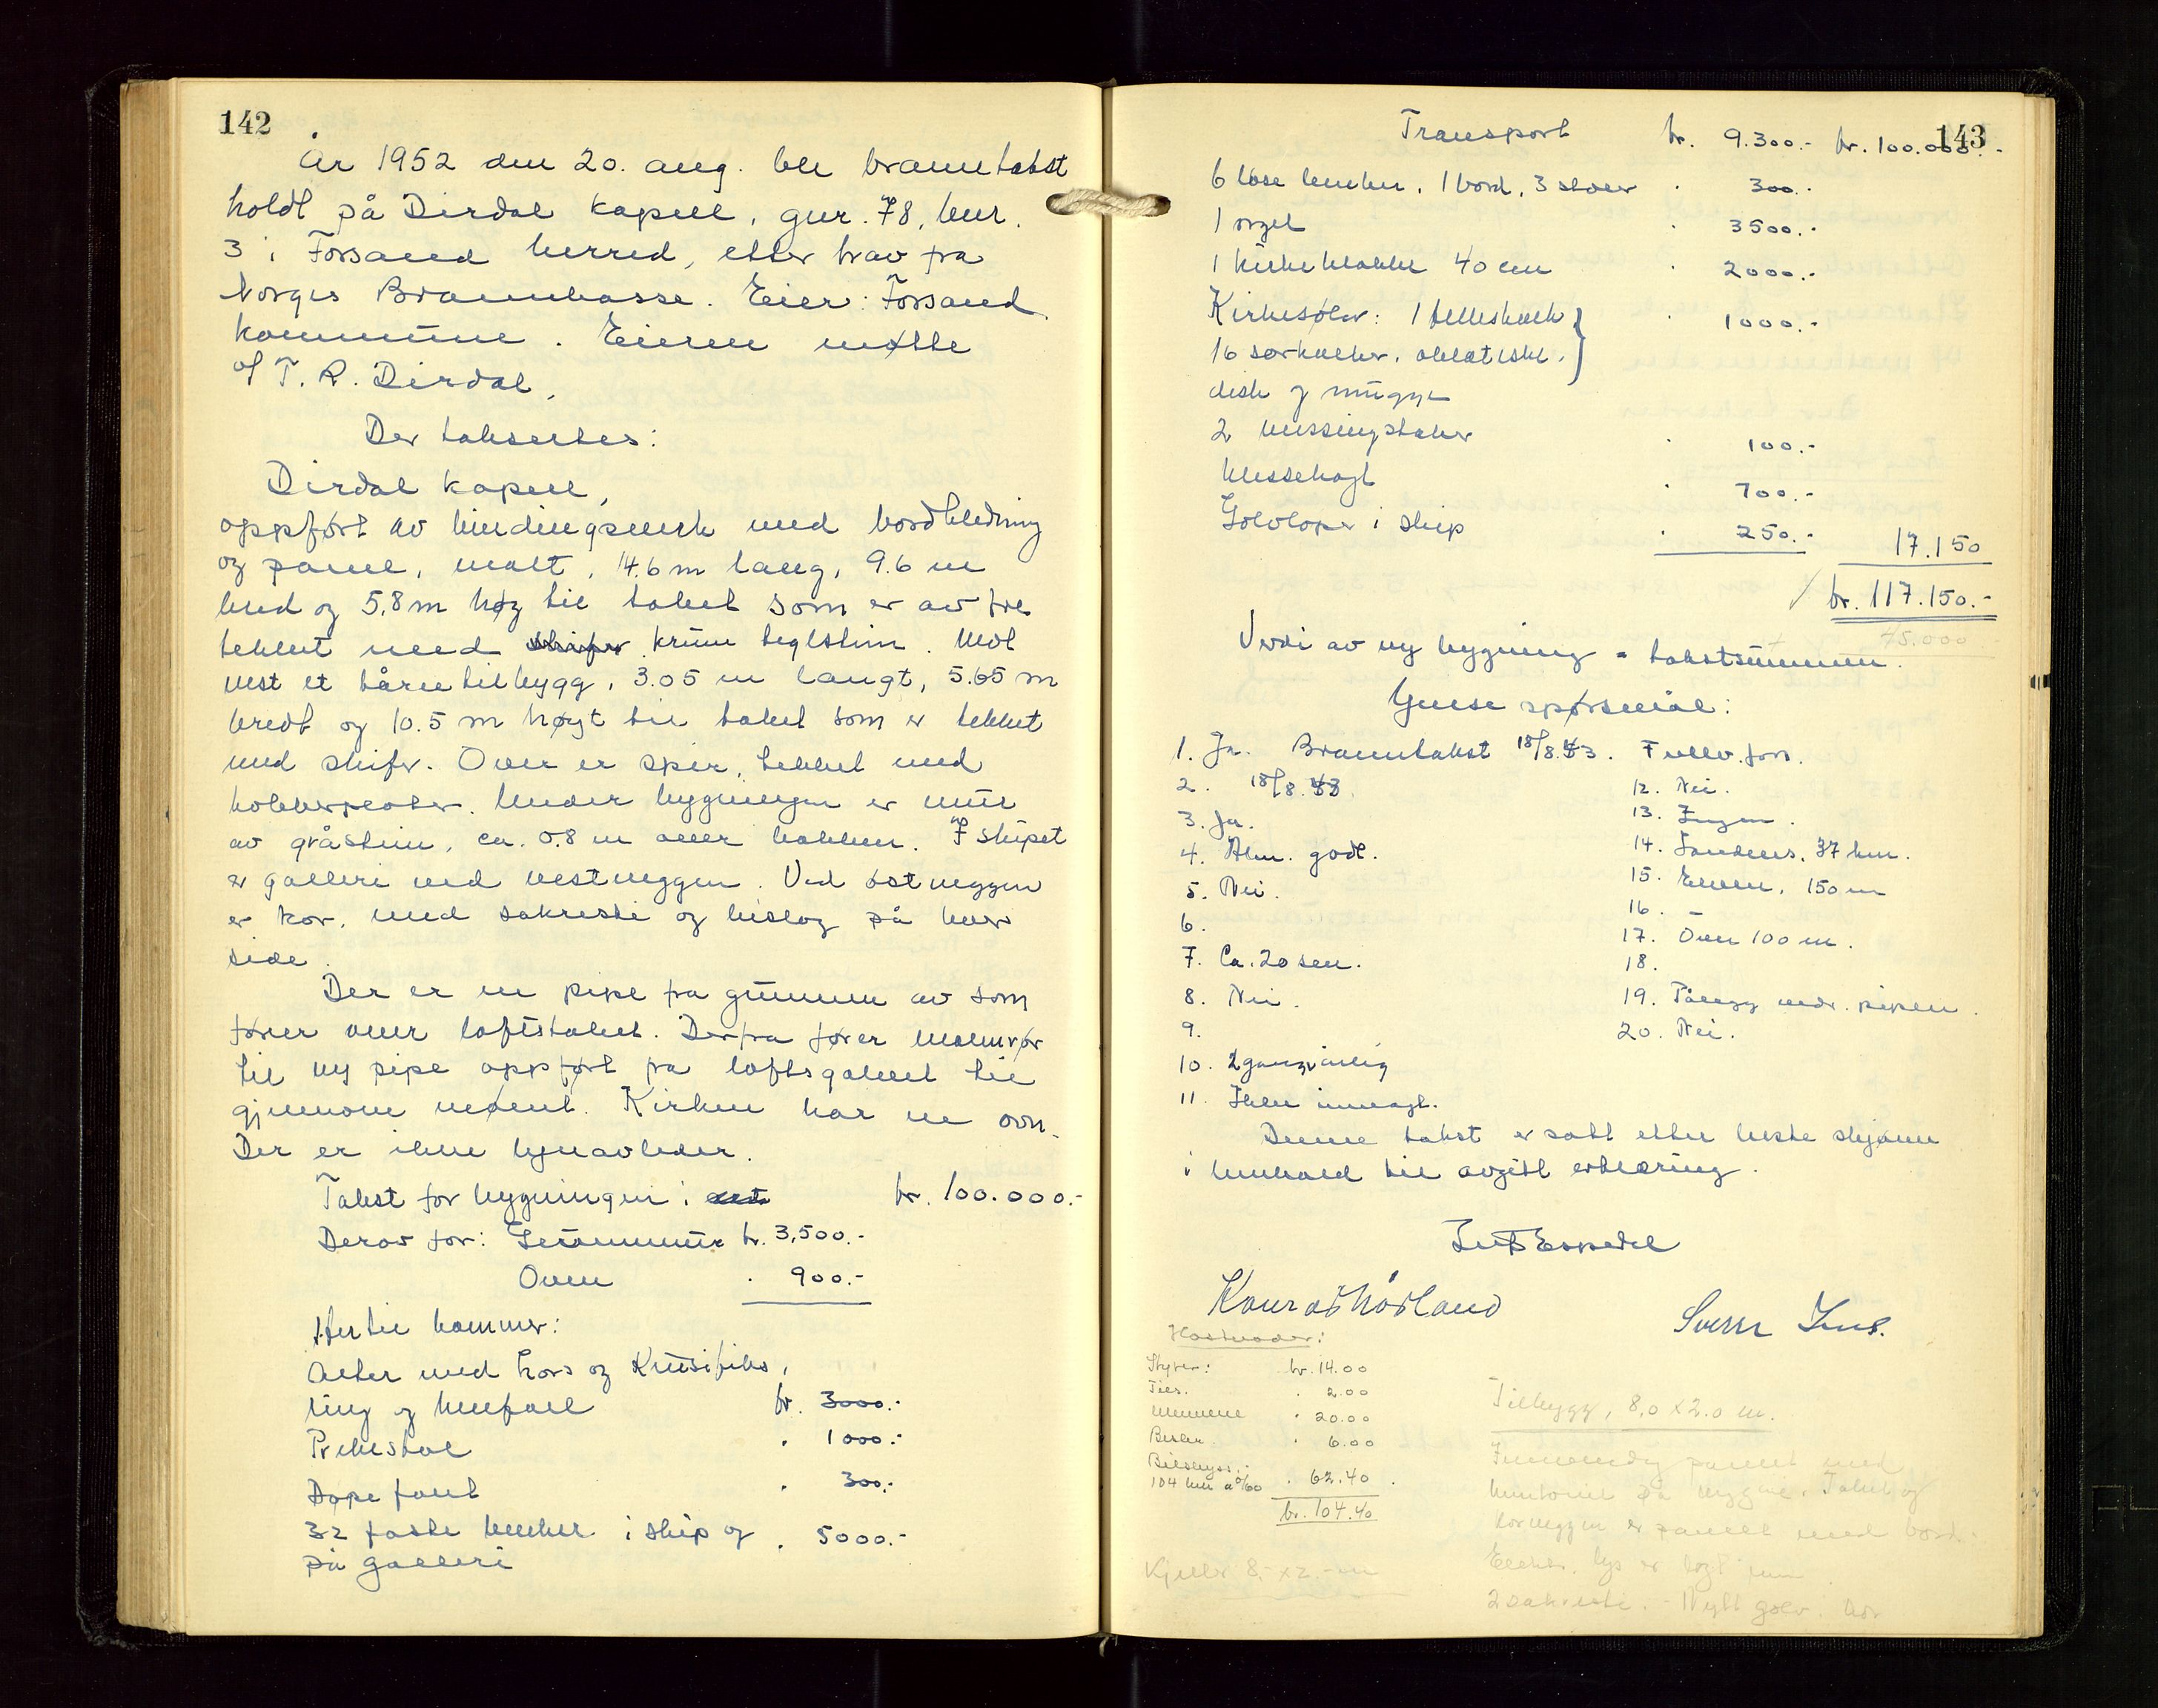 142
År 1952 den 20. aug. ble branntakst
holdt på Dirdal kapell, gnr. 78, bnr.
3 i Forsand herred, etter krav fra
Norges Brannkasse. Eier: Forsand
kommune. Eieren møtte
v/ T. R. Dirdal.
Der taksertes:
Dirdal kapell,
oppført av bindingsverk med bordkledning
og panel, malt, 14.6 m lang, 9.6 m
bred og 5,8 m høg til taket som er av tre
tekket med skifer krum teglstein. Mot
vest et tårntilbygg, 3.05 m langt, 5.65 m
bredt og 10.5 m høgt til taket som er tekket
med skifer. Over er spir, tekket med
kobberplater. Under bygningen er mur
av gråstein, ca. 0.8 m over bakken. I skipet
er galleri ved vestveggen. Ved østveggen
er kor, med sakresti og bislag på hver
side.
Der er en pipe fra grunnen av som
fører over loftstaket. Derfra fører malmrør
til ny pipe oppført fra loftsgolvet til
gjennom mønet. Kirken har en ovn.
Der er ikke lynavleder.
Takst for bygningen: kr. 100.000.-
Derav for: Gråmur kr. 3,500.-
Ovn " 900.-
Hertil kommer:
Alter med kors og krusifiks,
ring og knefall kr. 3000.-
Prekestol " 1000.-
Døpefont " 300.-
32 faste benker i skip og " 5000.-
på galleri
143
Transport kr. 9.300.- kr. 100.000.-
6 løse benker, 1 bord, 3 stoler " 300.-
1 orgel " 3500.-
1 kirkeklokke 40 cm " 2000.-
Kirkesølv: 1 felleskalk " 1000.-
16 særkalker, oblatesk.
disk og mugge
2 messingstaker " 100.-
Messehagl " 700.-
Golvløper i skip " 250.- 17.150
kr. 117.150.-
75.000
Verdi av ny bygning = takstsummen.
Ymse spørsmål:
1. Ja. Branntakst 18/8.43. Fullv. fors.
2. 18/8.43.
3. Ja.
4. Alm. godt.
5. Nei.
6.
7. Ca. 20 sen.
8. Nei.
9.
10. 2 gang årlig
11. Ikke innlagt.
12. Nei.
13. Ingen.
14. Sandnes, 37 km.
15. Elven, 150 m
16. –
17. Over 100 m.
18.
19. Pålegg vedr. pipen.
20. Nei.
Denne takst er satt etter beste skjønn
i henhold til avgitt erklæring.
Espedal
Konrad
Sverre
Kostnader:
Styrer: kr. 14.00
" 2.00
Mennene " 20.00
" 6.00
Bilskyss:
104 km a 0/60 " 62.40
kr. 104.40
Kjeller 8.- x 2.- m
Tilbygg, 8,0 x 2.0 m.
Innvendig panelt med
på veggene. Taket og
korveggen er panelt med bord.
Elektr. lys er lagt inn
2 sakresti. Nytt golv i kor